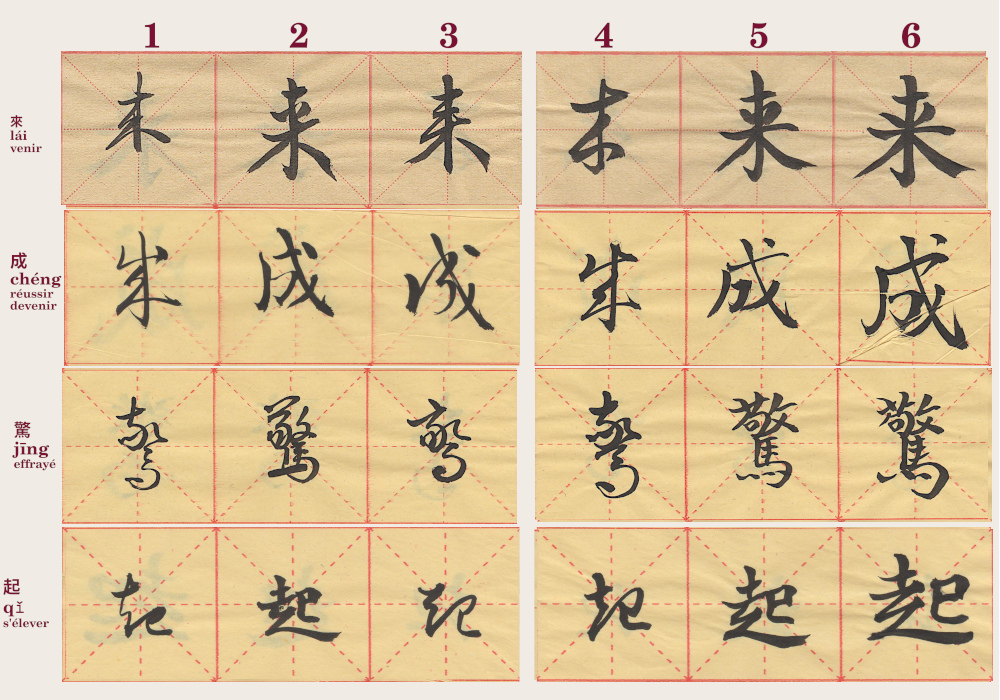 1 2 3 4 5 6
來
lái
venir
来 来 来 来 来 来
成
chéng
réussir
devenir
成 成 成 成 成 成
驚
jīng
effrayé
驚 驚 驚 驚 驚 驚
起
qǐ
s'élever
起 起 起 起 起 起